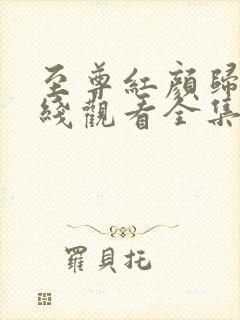 至尊紅顏歸
綫觀看全集
羅貝托